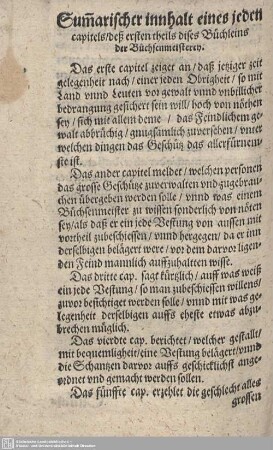 Sum̃arischer innhalt eines jeden
capitels/deß ersten theils dises Büchleins
der Büchsenmeisterey.
Das erste capitel zeiget an/daß jetziger zeit
gelegenheit nach/einer jeden Obrigkeit/so mit
Land vnnd Leuten vor gewalt vnnd vnbillicher
bedrangung gesichert sein will/hoch von nöthen
sey/sich mit allem deme / das Feindlichem ge-
walt abbrüchig/gnugsamlich zuversehen/vnter
welchen dingen das Geschütz das allerfürnem-
ste ist.
Das ander capitel meldet/welchen personen
das grosse Geschütze zuverwalten vnd zugebrau-
chen übergeben werden solle / vnnd was einem
Büchsenmeister zu wissen sonderlich von nöten
sey/als daß er ein jede Vestung von aussen mit
vortheil zubeschiessen/vnnd hergegen/da er inn
derselbigen belägert were/vor dem darvor ligen-
den Feind mannlich auffzuhalten wisse.
Das dritte cap. sagt kürtzlich/auff was weiß
ein jede Vestung/so man zubeschiessen willens/
zuvor besichtiget werden solle/vnnd mit was ge-
legenheit derselbigen auffs eheste etwas abzu-
brechen müglich.
Das vierdte cap. berichtet/welcher gestallt/
mit bequemligkeit/eine Vestung belägert/vnnd
die Schantzen darvor auffs geschicklichst ange-
ordnet vnd gemacht werden sollen.
Das fünffte cap. erzehlet die geschlecht alles
grossen